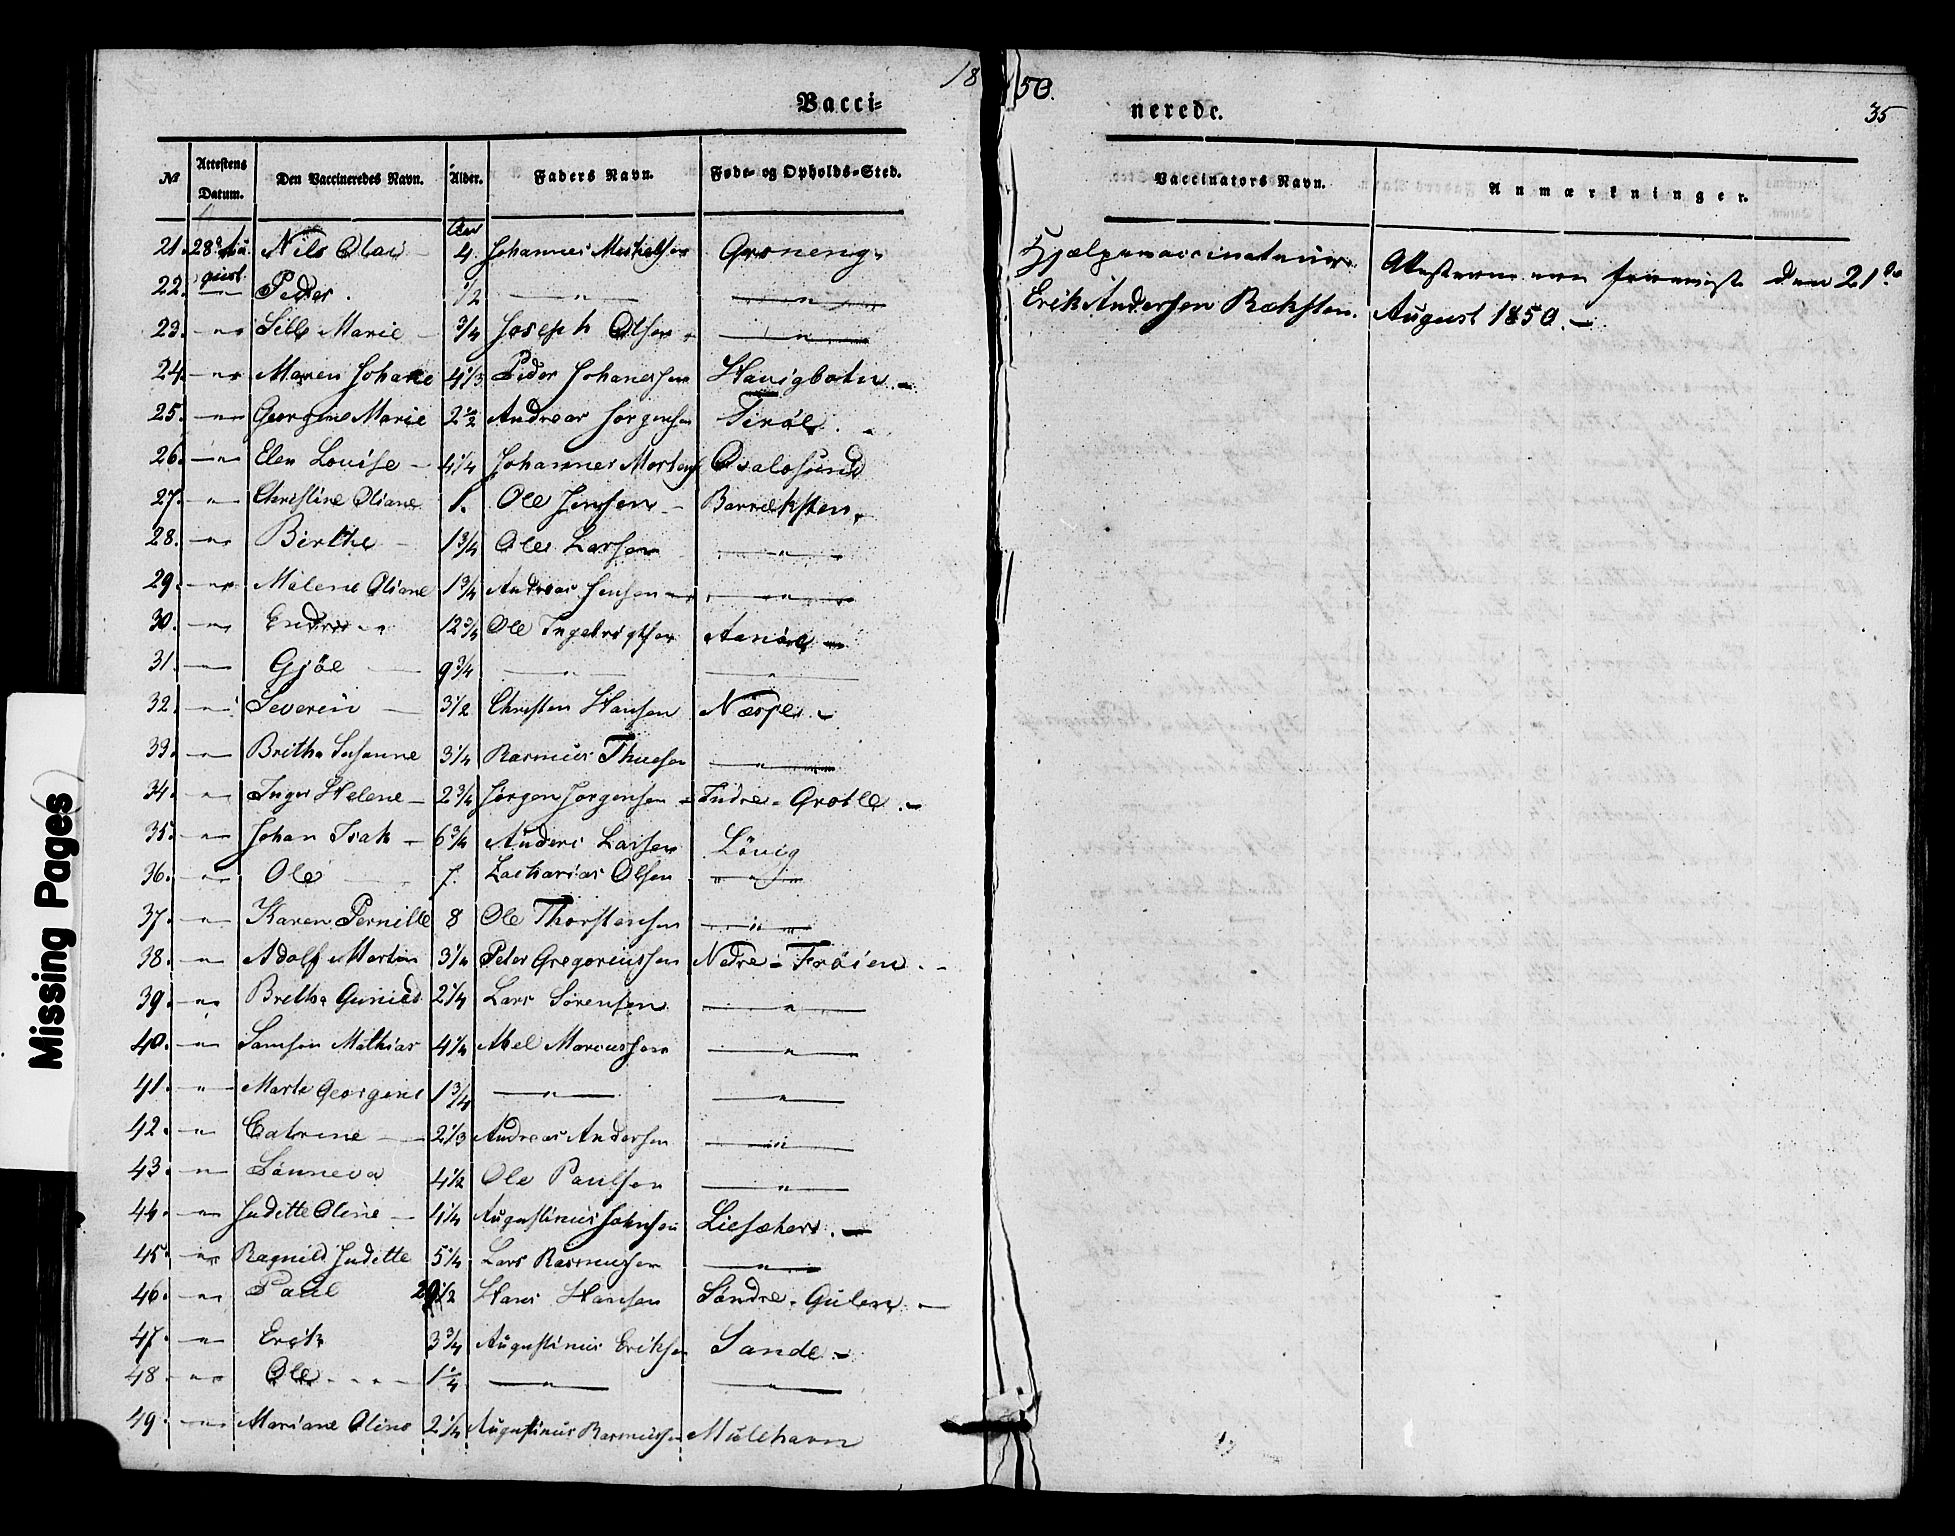 18
50.
Vacci=
nerede.
35
No
Attestens Datum.
Den Vaccineredes Navn.
Alder.
Faders Navn.
Føde- og Opholds-Sted.
Vaccinators Navn.
Anmærkninger.
Aar
21. 28d Au- Nils Olai - 4. Johannes Mikkelsen Grøneng.
gust
22. — Peder. 1/2 — " — — " —
23. — " — Sille Marie - 3/4 Joseph Olsen — " —
24. — " — Maren Johane 4 1/3 Peder Johanessen Havigbotn. -
25. — " — Georgine Marie 2 1/2 Andreas Jørgensen
26. — " — Elen Louise - 4 1/4 Johannes Mortens Qvalosund
27. — " — Christine Oliane 1. Ole Jensen - Barreksten.
28. — " — Birthe - 1 3/4 Ole Larsen — " —
29. — " — Malene Oliane 1 3/4 Andreas Jensen — " —
30. — " — Endre - 12 3/4 Ole Ingebrigtsen
31. — " — Gjøe — 9 3/4 — " — — " —
32. — " — Severin — 3 1/2 Christen Hansen Næsje. -
33. — " — Britha Susanne 3 1/4 Rasmus Thuesen — " —
34. — " — Inger Helene - 2 3/4 Jørgen Jørgensen - Indre - Grotle. -
35. — " — Johan Isak - 6 3/4 Anders Larsen Løvig
36. — " — Ole 7. Zacharias Olsen — " —
37. — " — Karen Pernille 8 Ole Thorstensen — " —
38. — " — Adolf Martin 3 1/4 Peter Gregoriussen Nedre - Frøien. -
39. — " — Britha Gunild 2 1/4 Lars Sørensen — " —
40. — " — Samson Mathias 4 1/4 Abel Marcussen — " —
41. — " — Marte Georgine 1 3/4 — " — — " —
42. — " — Catrine — 2 1/3 Andreas Andersen — " —
43. — " — Sønneva 4 1/2 Ole Paulsen — " —
44. — " — Juditte Oline - 4 1/4 Augustinus Johnsen
45. — " — Ragnild Juditte 5 1/4 Lars Rasmussen — " —
46. — " — Paul 1/2 Hans Hansen Søndre - Gulen. —
47. — " — Erik 3 3/4 Augustinus Eriksen Sande. -
48 — " — Ole - " - 1 1/4 — " — — " —
49. — " — Mariane Oline 2 1/4 Augustinus Rasmussen Mulehavn
Hjælpevaccinateur
Erik Andersen Ræksten.
Attesterne ere fremviste den 21de
August 1850. —
Missing Pages